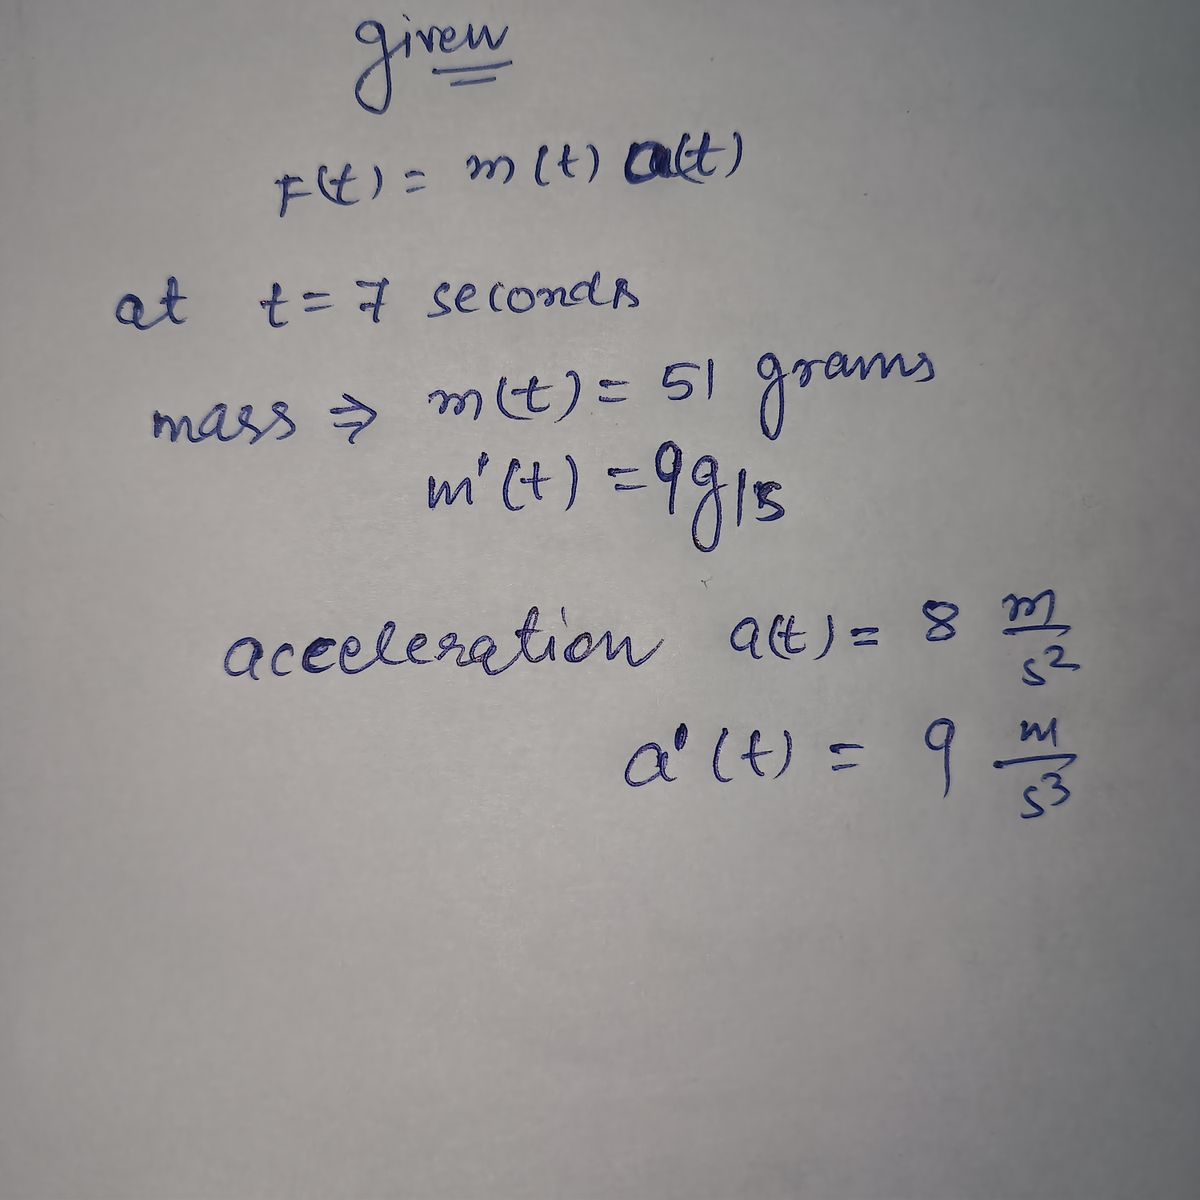 given
F(t) = m(t) a(t)
at t = 7 seconds
mass ⇒ m(t) = 51 grams
m'(t) = 9g/s
acceleration a(t) = 8 m/s²
a'(t) = 9 m/s³